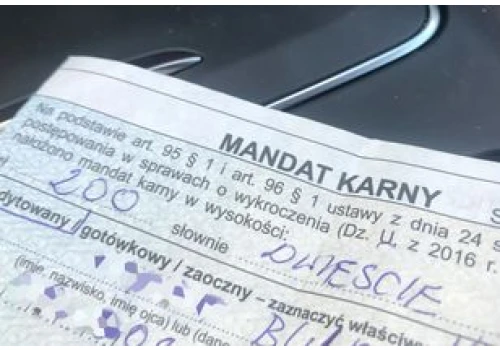 MANDAT KARNY
Na podstawie art. 95 § 1 i art. 96 § 1 ustawy z dnia 24 s
postępowania w sprawach o wykroczenia (Dz. U. z 2016 r.
nałożono mandat karny w wysokości:
200 słownie DWIEŚCIE
dytowany / gotówkowy / zaoczny – zaznaczyć właściwe
(imię, nazwisko, imię ojca) lub (dane